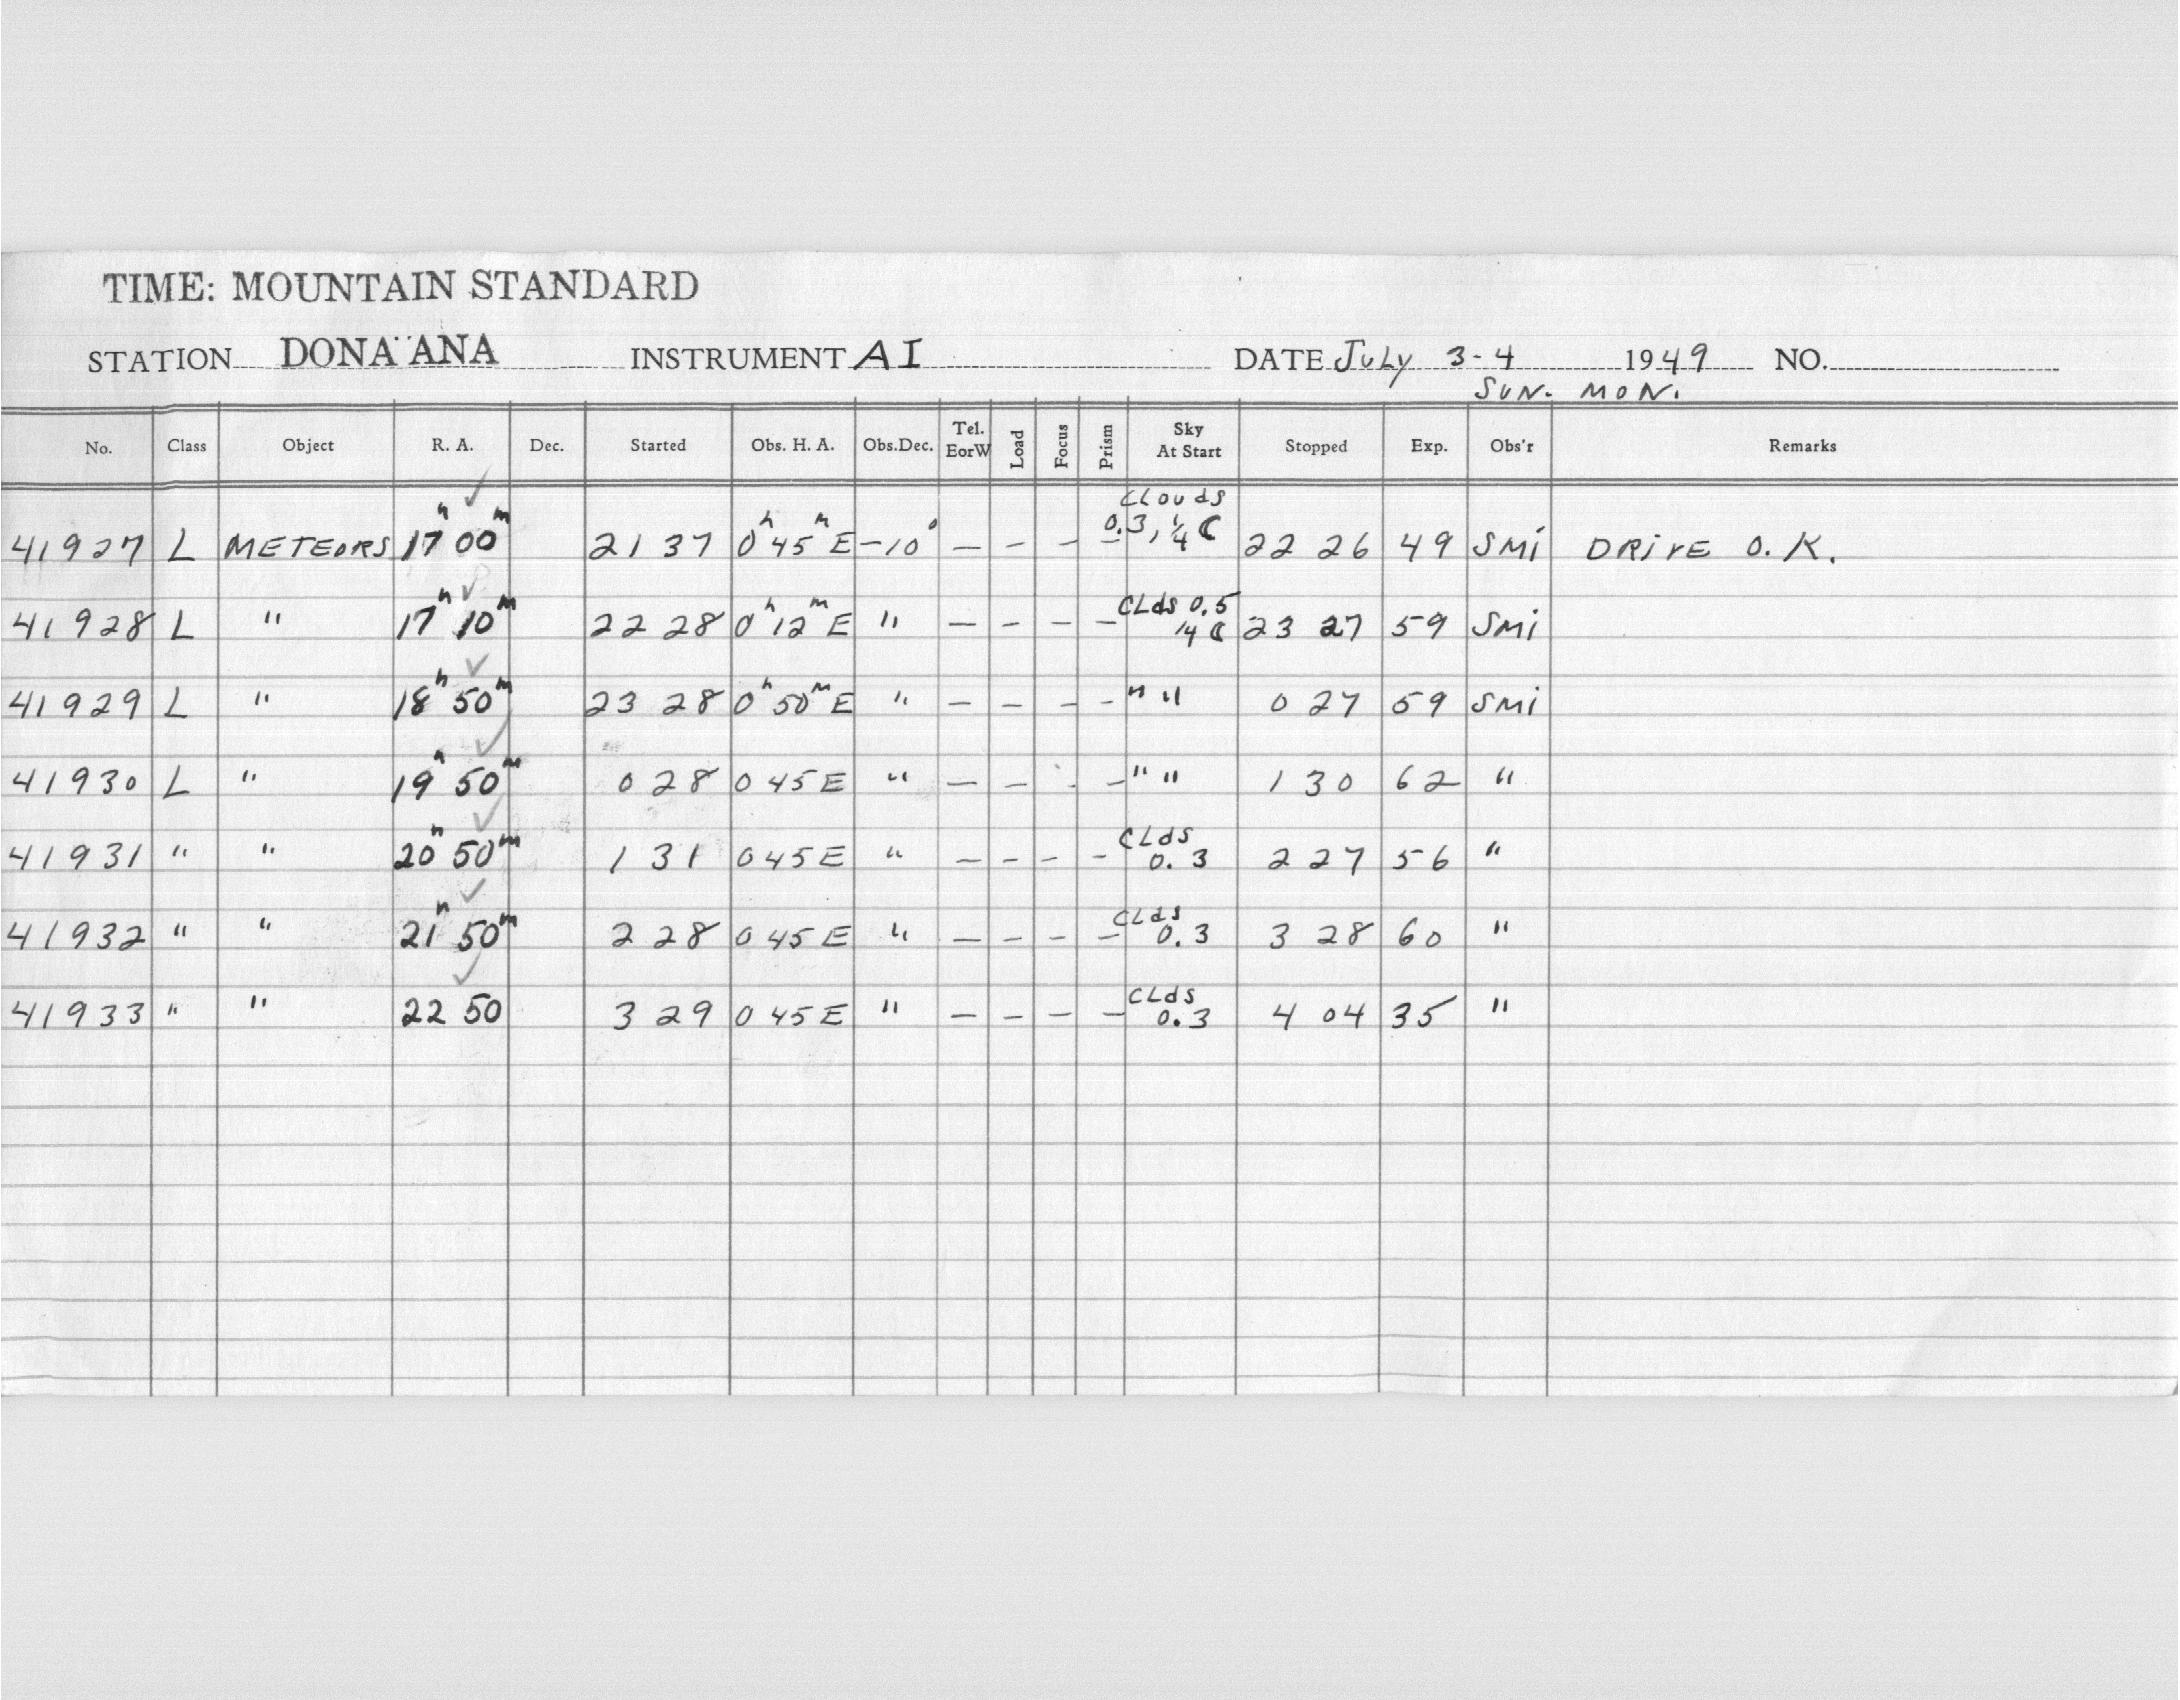 TIME: MOUNTAIN STANDARD
STATION DONA ANA INSTRUMENT AI DATE JULY 3-4 1949 NO.
SUN. MON.
No. Class Object R. A. Dec. Started Obs. H. A. Obs.Dec. Tel. EorW Load Focus Prism Sky At Start Stopped Exp. Obs'r Remarks
41927 L METEORS 17h 00m 21 37 0h 45m E -10° — – – – CLOUDS 0.3, 1/4 ☾ 22 26 49 SMi DRIVE O.K.
41928 L " 17h 10m 22 28 0h 12m E " — – – – CLdS 0.5 1/4 ☾ 23 27 59 SMi
41929 L " 18h 50m 23 28 0h 50m E " — – – – " " 0 27 59 SMi
41930 L " 19h 50m 0 28 0 45 E " — – - – " " 1 30 62 "
41931 " " 20h 50m 1 31 0 45 E " — – – – CLdS 0.3 2 27 56 "
41932 " " 21h 50m 2 28 0 45 E " — – – – CLdS 0.3 3 28 60 "
41933 " " 22 50 3 29 0 45 E " — – – – CLdS 0.3 4 04 35 "